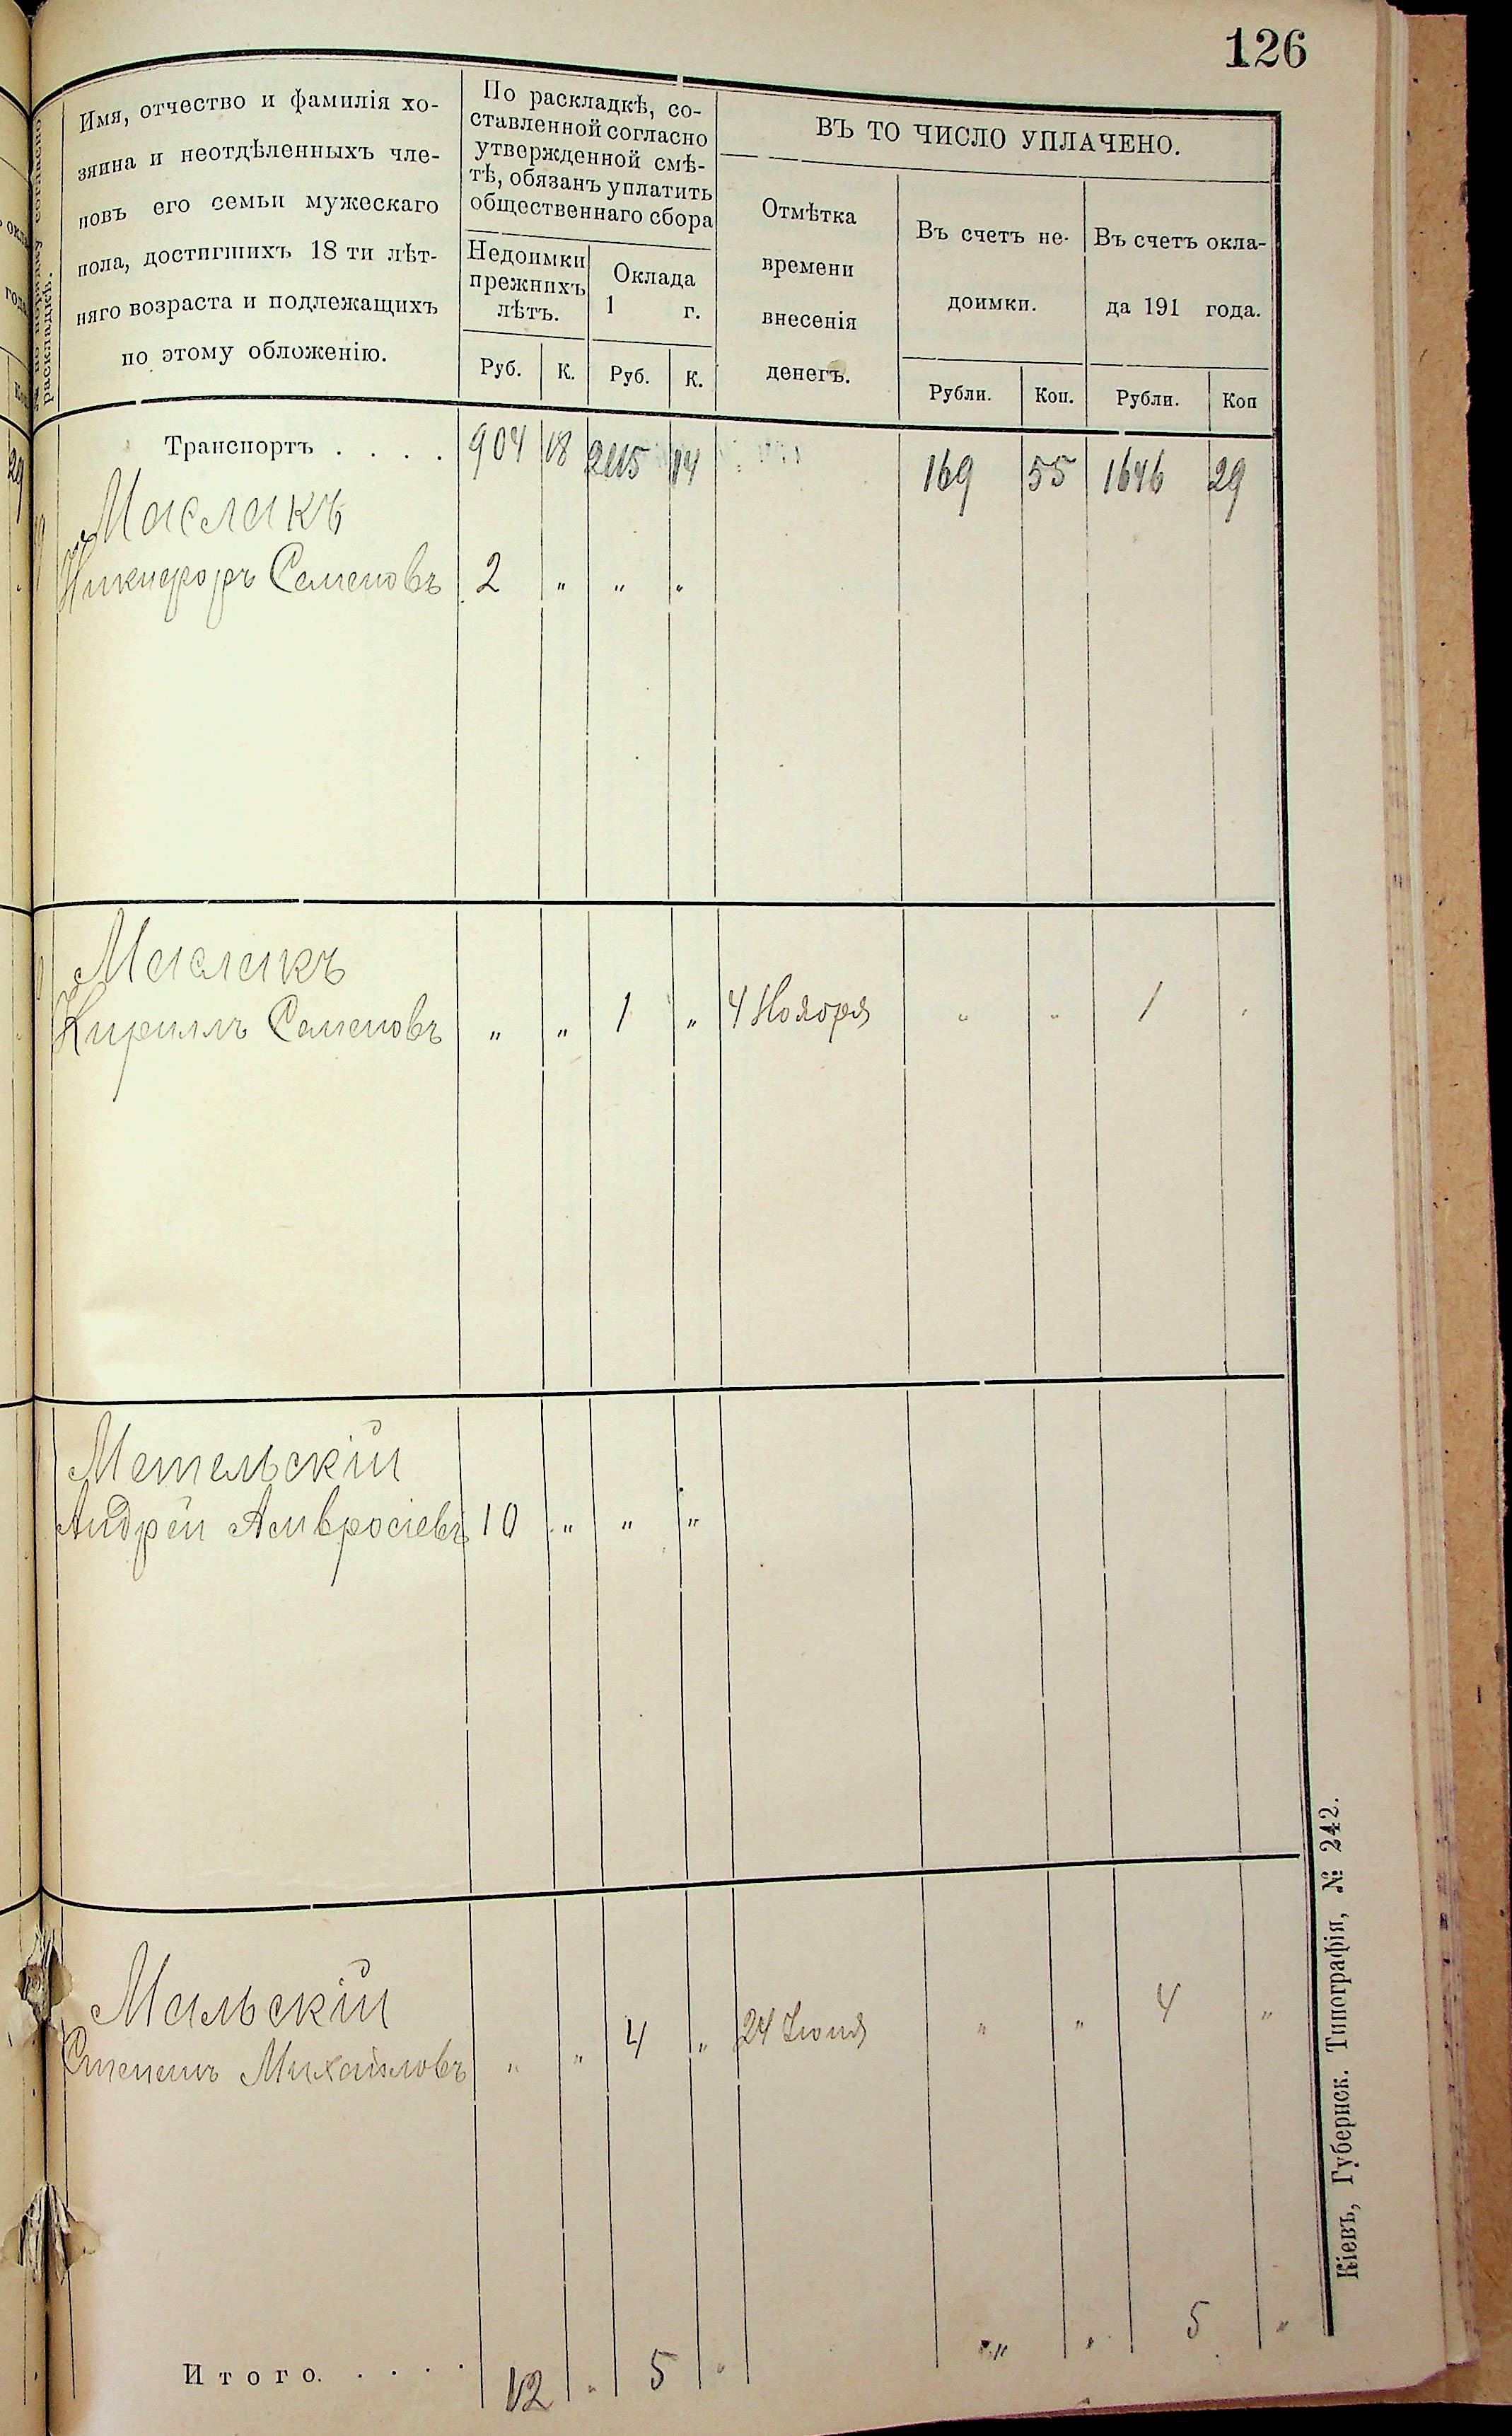 126
Имя, отчество и фамилія хо-
зяина и неотдѣленныхъ чле-
новъ его семьи мужескаго
пола, достигшихъ 18 ти лѣт-
няго возраста и подлежащихъ
по этому обложенію.
По раскладкѣ, со-
ставленной согласно
утвержденной смѣ-
тѣ, обязанъ уплатить
общественнаго сбора
Недоимки
прежнихъ
лѣтъ.
Оклада
1 г.
Руб. К. Руб. К.
ВЪ ТО ЧИСЛО УПЛАЧЕНО.
Отмѣтка
времени
внесенія
денегъ.
Въ счетъ не-
доимки.
Въ счетъ окла-
да 191 года.
Рубли. Коп. Рубли. Коп
Транспортъ . . . . 904 18 14 169 55 1646 29
Маслакъ
Никифоръ Семеновъ 2 " " "
Маслакъ
Кириллъ Семеновъ " " 1 " 4 Ноября " " 1 "
Метельскій
Андрей Амвросіевъ 10 " " "
Мальскій
Степанъ Михайловъ " " 4 " 24 Іюня " " 4 "
Итого. . . . . 12 " 5 " " " 5 "
Кіевъ, Губернск. Типографія, № 242.